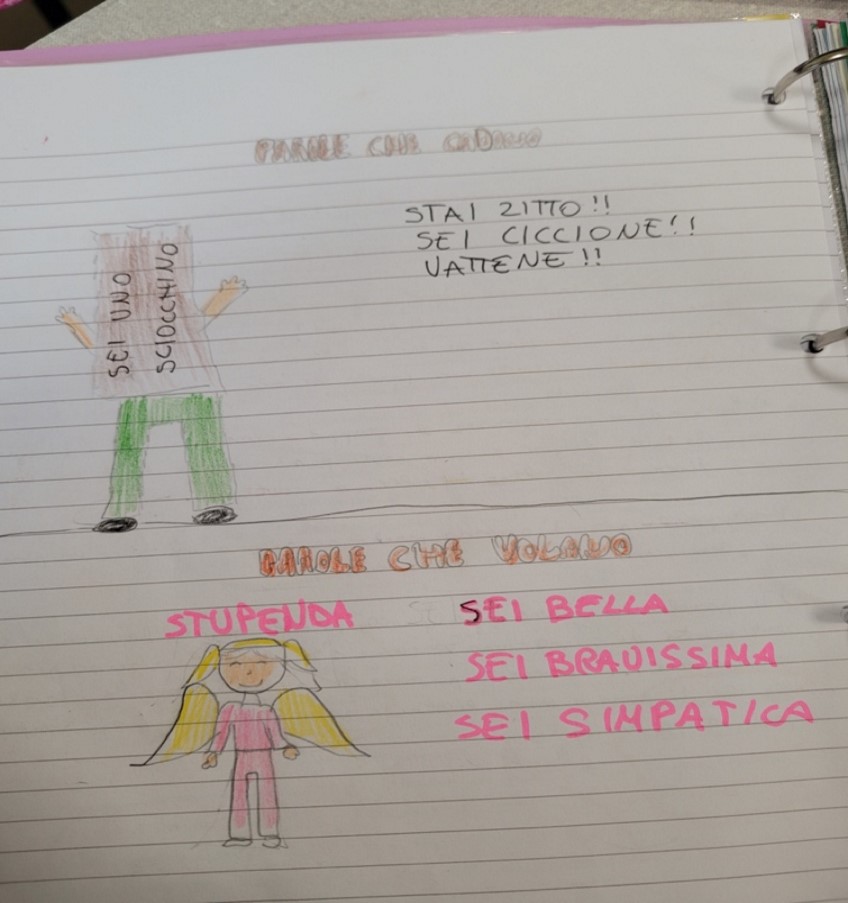 PAROLE CHE CADONO
STAI ZITTO!!
SEI CICCIONE!!
VATTENE!!
SEI UNO
SCIOCCHINO
PAROLE CHE VOLANO
STUPENDA
SEI BELLA
SEI BRAVISSIMA
SEI SIMPATICA